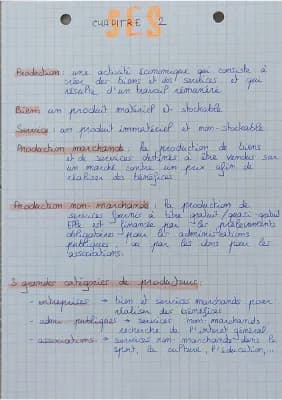 SES
CHAPITRE 2
Production : une activité économique qui consiste à
créer des biens et des services et qui
résulte d'un travail rémunéré
Bien: un produit matériel et stockable
Service: un produit immatériel et non-stockable
Production marchande : la production de biens
et de services destinés à être vendus sur
un marché contre un prix afin de
réaliser des bénéfices.
Production non marchande : la production de
services fournis à titre gratuit/quasi-gratuit
Elle est financée par les prélèvements
obligatoires pour les administrations
publiques, ou par les dons pour les
associations.
3 grandes catégories de producteurs:
- entreprises → bien et services marchands pour
réaliser des bénéfices
- adm publiques → services non-marchands
recherche de l'intérêt général
- associations → services non-marchands dans le
sport, la culture, l'éducation,...